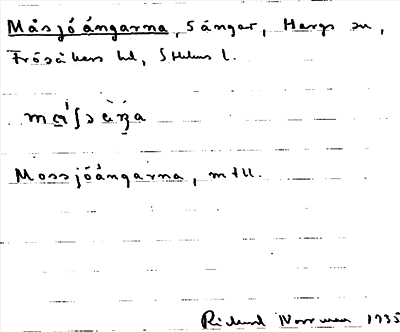 Måsjöängarna, sängar, Hargs sn,
Frösåkers hd, Sthlms l.
Mossjöängarna, mtll.
Richard Norrman 1935